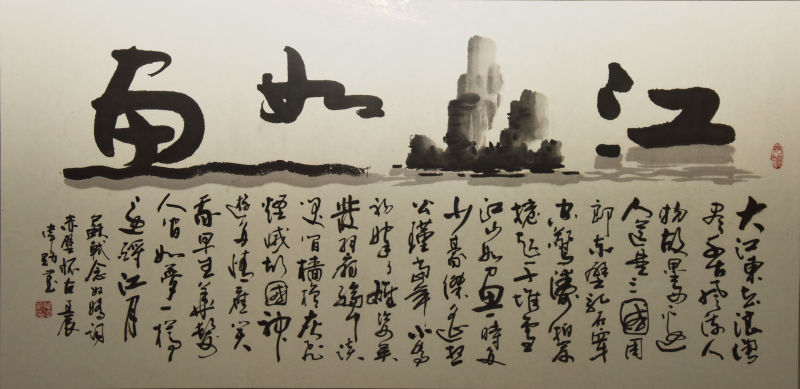 江如画
大江東去浪淘
盡千古風流人
物故壘西邊
人道是三國周
郎赤壁乱石穿
空驚濤拍岸
捲起千堆雪
江山如画一時多
少豪傑遥想
公瑾當年小喬
初嫁了雄姿英
發羽扇綸巾談
笑间樯橹灰飛
煙滅故國神
遊多情應笑
我早生華髮
人间如夢一樽
還酹江月
蘇軾念奴嬌詞
赤壁怀古